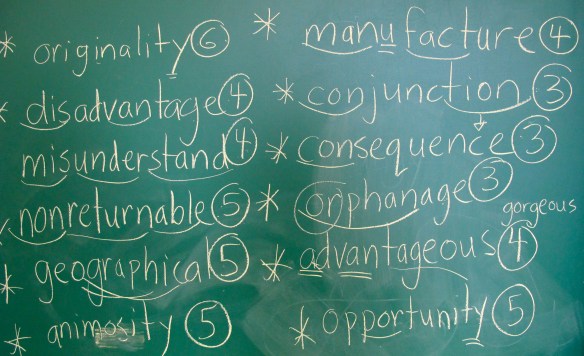 * originality ⑥
* disadvantage ④
misunderstand ④
nonreturnable ⑤
* geographical ⑤
* animosity ⑤
* manufacture ④
* conjunction ③
* consequence ③
* orphanage ③
gorgeous
* advantageous ④
* opportunity ⑤